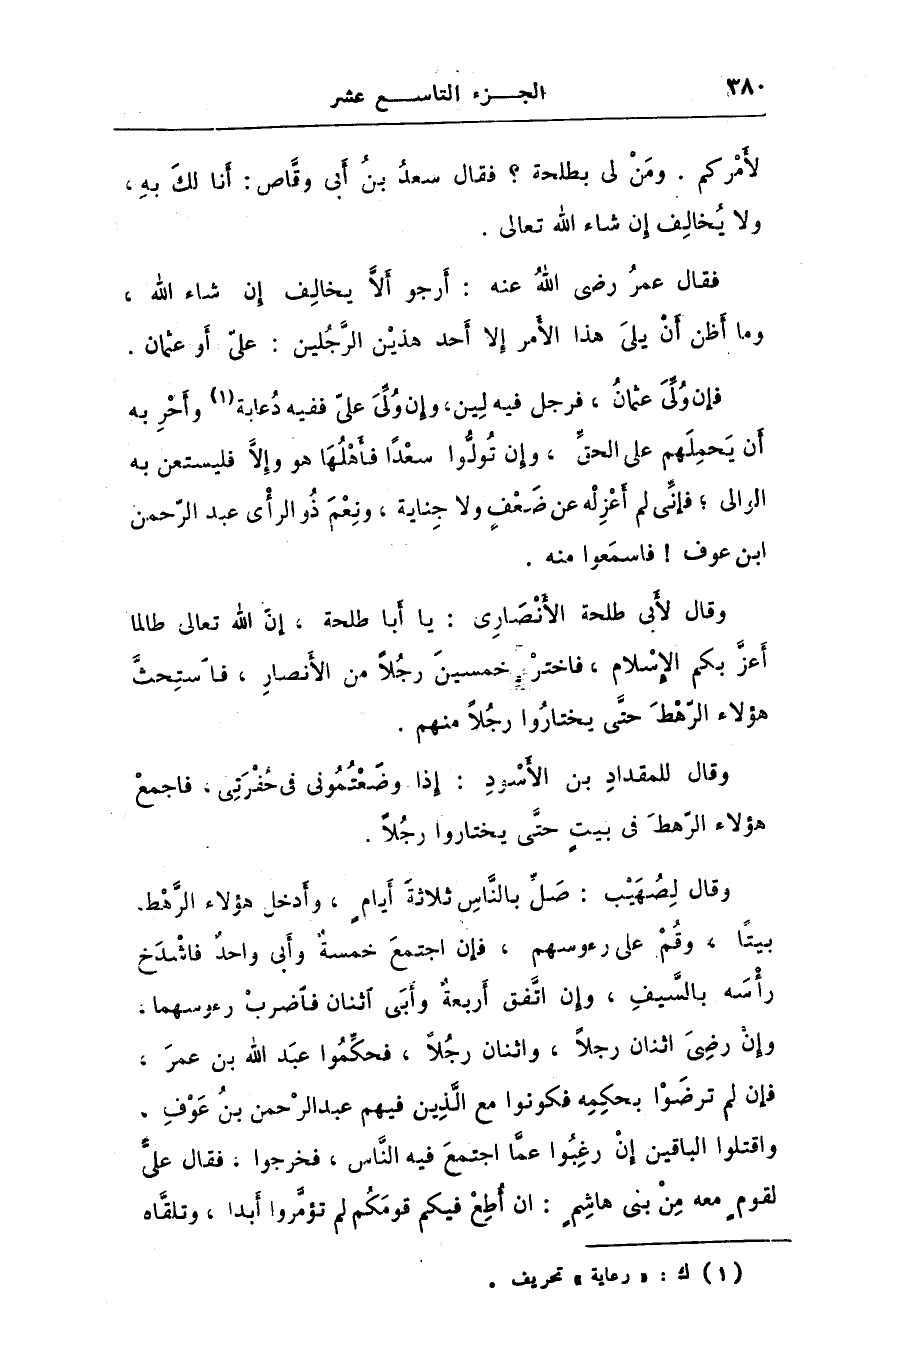 ٣٨٠
الجـــزء التاســـع عشر
لأَمْركم . ومَنْ لى بطلحة ؟ فقال سعدُ بنُ أَبى وقَّاص : أَنا لكَ بهِ ،
ولا يُخالِف إن شاء الله تعالى .
فقال عمرُ رضى اللهُ عنه : أَرجو أَلاَّ يخالِف إن شاء الله ،
وما أَظن أَنْ يلىَ هذا الأَمر إلا أَحد هذيْن الرَّجُلين : علىّ أَو عثمان .
فإن وُلِّىَ عثمانُ ، فرجل فيه لِين، وإن وُلِّىَ علىّ ففيه دُعابة(١) وأَحْرِ به
أَن يَحمِلَهم على الحقِّ ، وإن تُولُّوا سعْدًا فأَهْلُهَا هو وإلاَّ فليستعن به
الوالى ؛ فإنِّى لم أَعْزِلْه عن ضَعْفٍ ولا جِناية ، ونِعْمَ ذُو الرأْى عبد الرّحمن
ابن عوف ! فاسمَعوا منه .
وقال لأَبى طلحة الأَنْصَارِى : يا أَبا طلحة ، إنَ الله تعالى طالما
أَعزَّ بكم الإسْلام ، فاخترْ خمسينَ رجُلاً من الأَنصارِ ، فاَستِحثَّ
هؤلاء الرّهْطَ حتَّى يختارُوا رجُلاً منهم .
وقال للمقدادِ بن الأَسْودِ : إذا وضَعْتُمُونى فى حُفْرَتِى ، فاجمعْ
هؤلاء الرّهطَ فى بيتٍ حتَّى يختاروا رجُلاً .
وقال لِصُهَيْب : صَلِّ بالنَّاسِ ثلاثةَ أَيامٍ ، وأَدخل هؤلاء الرَّهْط.
بيتًا ، وقُمْ على رءوسهم ، فإن اجتمعَ خمسةٌ وأَبى واحدٌ فاشْدَخ
رأْسَه بالسَّيفِ ، وإن اتَّفق أَربعةٌ وأَبَى اَثنان فاَضربْ رءوسهما ،
وإنْ رضِىَ اثنان رجلاً ، واثنان رجُلاً ، فحكِّمُوا عبَد الله بن عمرَ ،
فإن لم ترضَوْا بحكمِه فكونوا مع الَّذِين فيهم عبدالرْحمن بنُ عَوْفِ .
واقتلوا الباقين إنْ رغِبُوا عمَّا اجتمعَ فيه النَّاس ، فخرجوا ، فقال علىٌّ
لقومٍ معه مِنْ بنى هاشِمٍ : ان أُطِعْ فيكم قومَكُم لم تؤمَّروا أَبدا ، وتلقَّاه
(١) ك : « رعاية » تحريف .